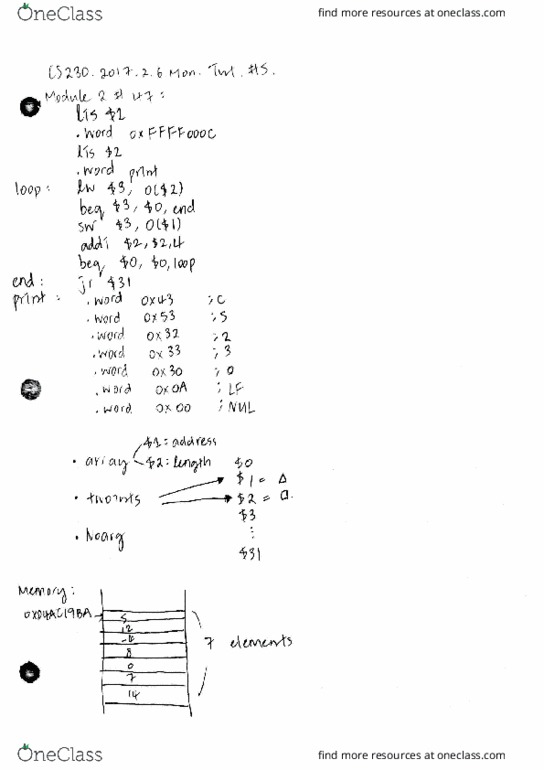 OneClass find more resources at oneclass.com
CS230. 2017. 2. 6 Mon. Tut. #5.
Module 2 # 47:
lis $2
.word 0xFFFF000C
lis $2
.word print
loop: lw $3, 0($2)
beq $3, $0, end
sw $3, 0($1)
addi $2, $2, 4
beq $0, $0, loop
end: jr $31
print: .word 0x43 ;C
.word 0x53 ;S
.word 0x32 ;2
.word 0x33 ;3
.word 0x30 ;0
.word 0x0A ;LF
.word 0x00 ;NUL
$1: address
• array $2: length $0
$1 = Δ
• twoints $2 = □.
$3
• noarg ⋮
$31
Memory:
0x04AC19BA
5
12
8
0
7
14
7 elements
OneClass find more resources at oneclass.com